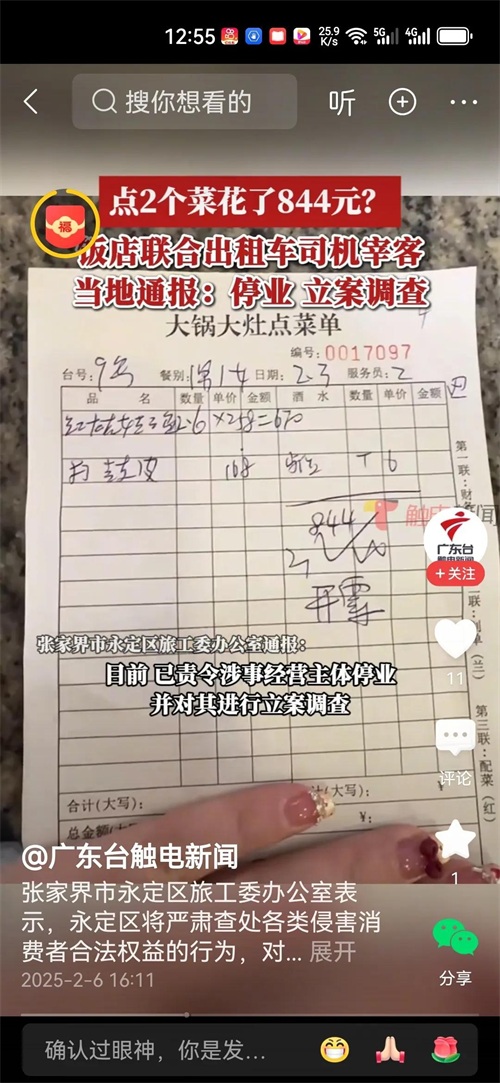 12:55
25.9
K/s
5G
4G
搜你想看的
听
点2个菜花了844元?
福
饭店联合出租车司机宰客
当地通报：停业 立案调查
大锅大灶点菜单
编号：0017097
台号：9号
餐别：
日期：2.3
服务员：
品 名
数量
单价
金额
酒 水
数量
单价
金额
2.6×258=670
168
6
844
开票
第一联：财
触电新闻
广东台
触电新闻
+关注
张家界市永定区旅工委办公室通报：
目前 已责令涉事经营主体停业
并对其进行立案调查
11
联：
单(兰)
评论
第三联：配菜(红)
合计(大写)：
计(大写)：
¥：
总金额(大写
1
@广东台触电新闻
张家界市永定区旅工委办公室表
示，永定区将严肃查处各类侵害消
费者合法权益的行为，对... 展开
2025-2-6 16:11
分享
确认过眼神，你是发...